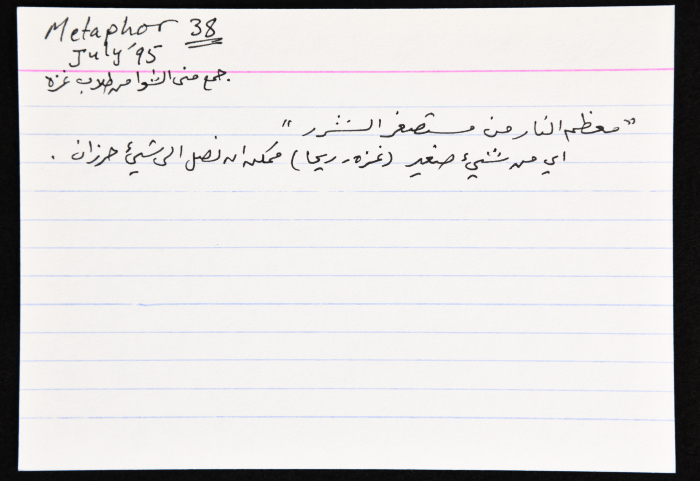 Metaphor 38
July '95
جمع منى الشوا من طلاب غزه.
"معظم النار من مستصغر الشرر"
اي من شيء صغير (غزه، ريحا) ممكن ان نصل الى شيء حرزان.